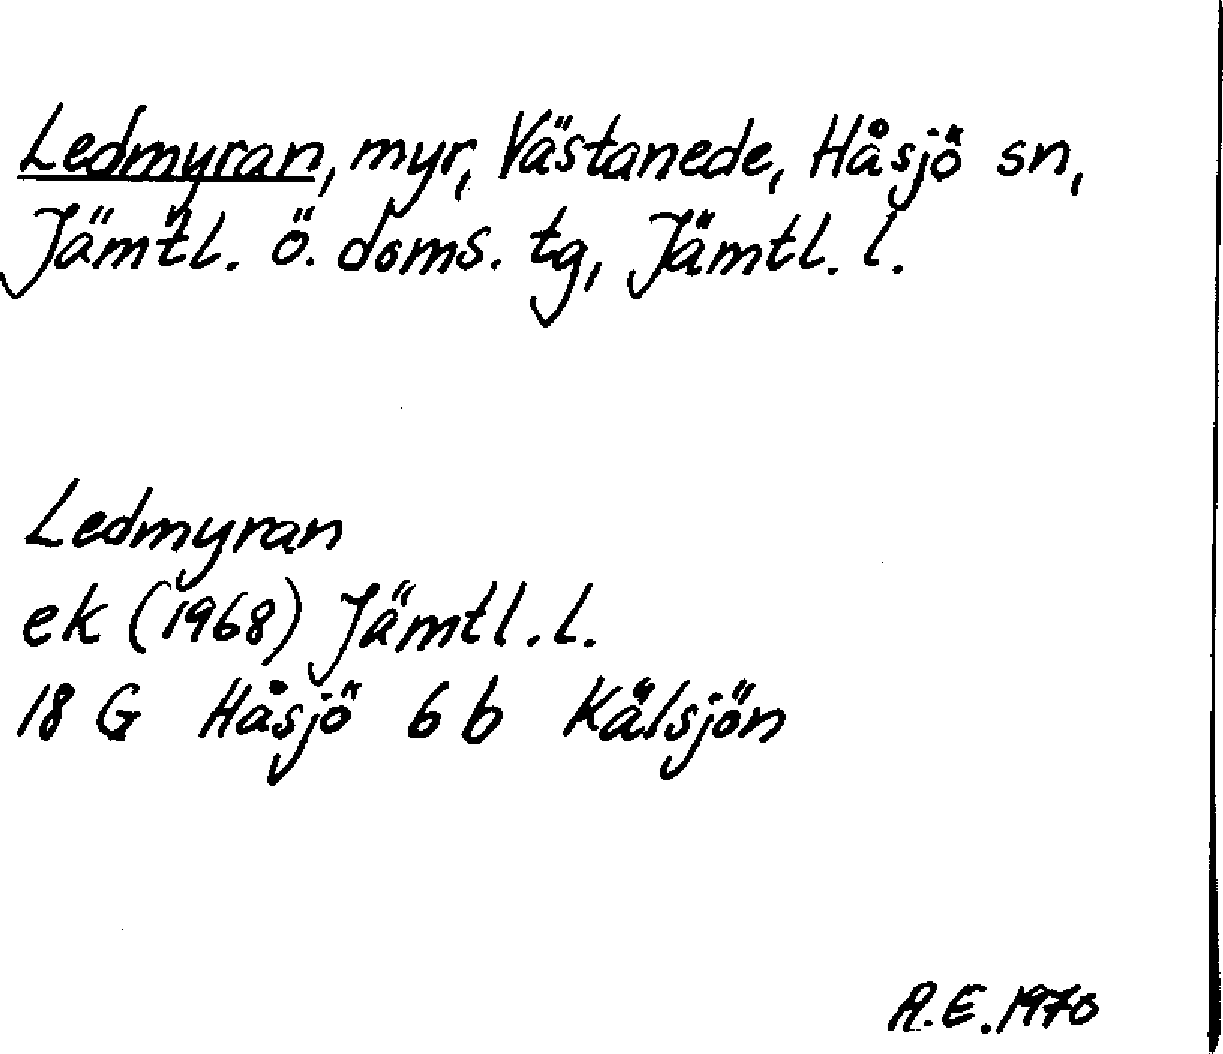 Ledmyran, myr, Västanede, Håsjö sn,
Jämtl. ö. doms. tg, Jämtl. l.
Ledmyran
ek (1968) Jämtl. l.
18 G Håsjö 6 b Kälsjön
A.E. 1970